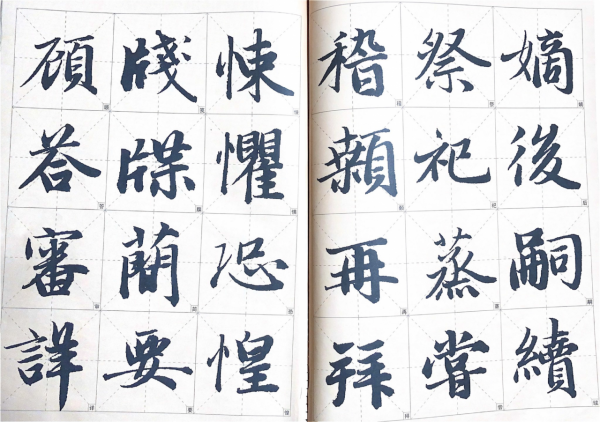 嫡後嗣續
祭祀蒸嘗
稽顙再拜
悚懼恐惶
牋牒蕳要
顧荅審詳